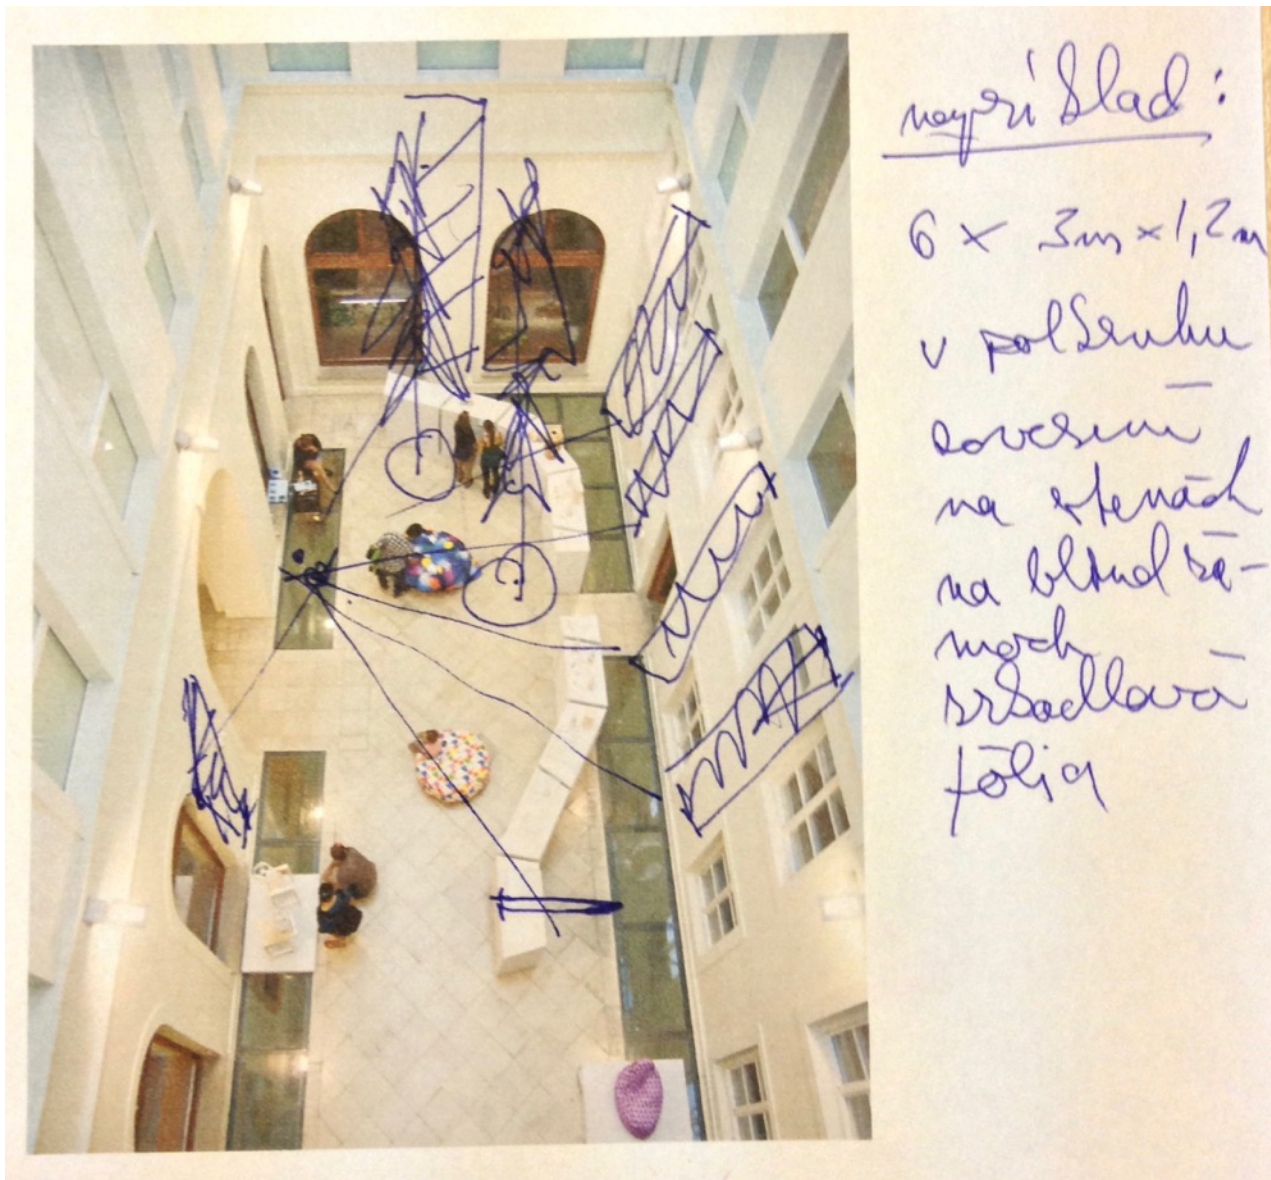 napríklad:
6 x 3m x 1,2m
v polkruhu
zavesené
na stenách
na blind rá-
moch
zrkadlová
fólia